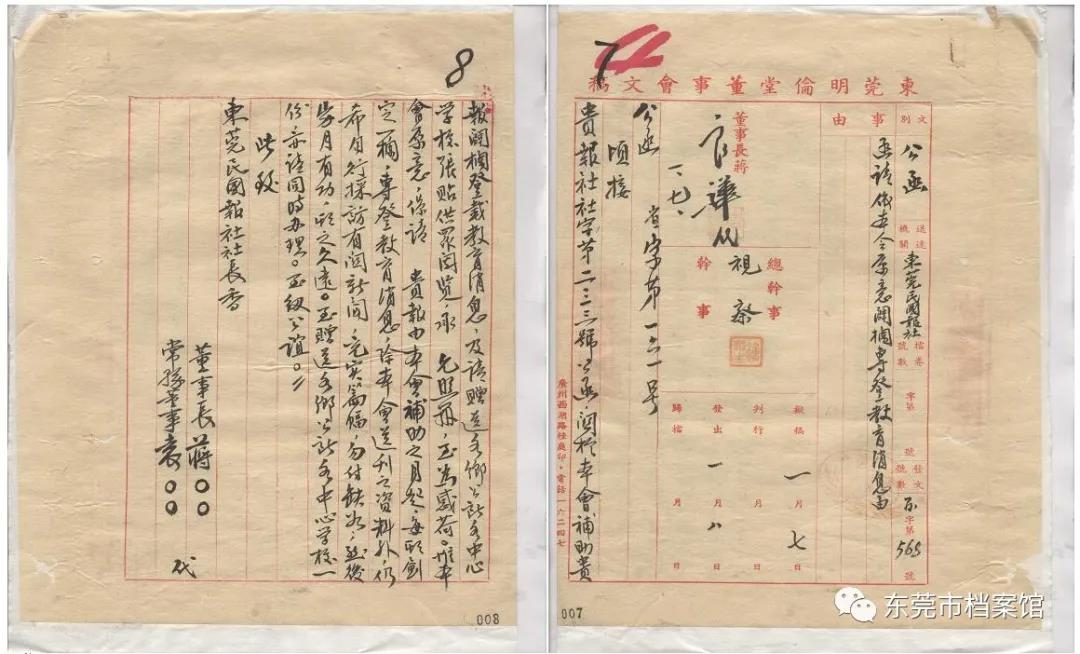 7
東莞明倫堂董事會文稿
文別
公函
送達機關
東莞民國報社
檔卷號數
字第
號
發文號數
字第
565
號
事由
函請依本會原意闢欄專登教育消息由
董事長蔣
總幹事
幹事
視察
擬稿
一月七日
判行
月
日
發出
一月八日
歸檔
月
日
公函
字第一三一号
頃接
貴報社社字第二三三號公函關於本會補助貴
廣州西湖路桂處印·電話一六二四七
007
8
報闢欄登載教育消息,及請贈送各鄉公所各中心
學校張貼供眾閱覽,承 允照辦,至為感荷。惟本
會原意,係請 貴報由本會補助之月起,每期劃
定一欄,專登教育消息,除本會送刊之資料外,仍
希自行採訪有關新聞,充實篇幅,勿付缺如,然後
歲月有功,期之久遠。至贈送各鄉公所各中心學校一
份亦請同時办理。至級公誼。
此致
東莞民國報社社長香
董事長蔣○○
常務董事袁○○
代
008
东莞市档案馆